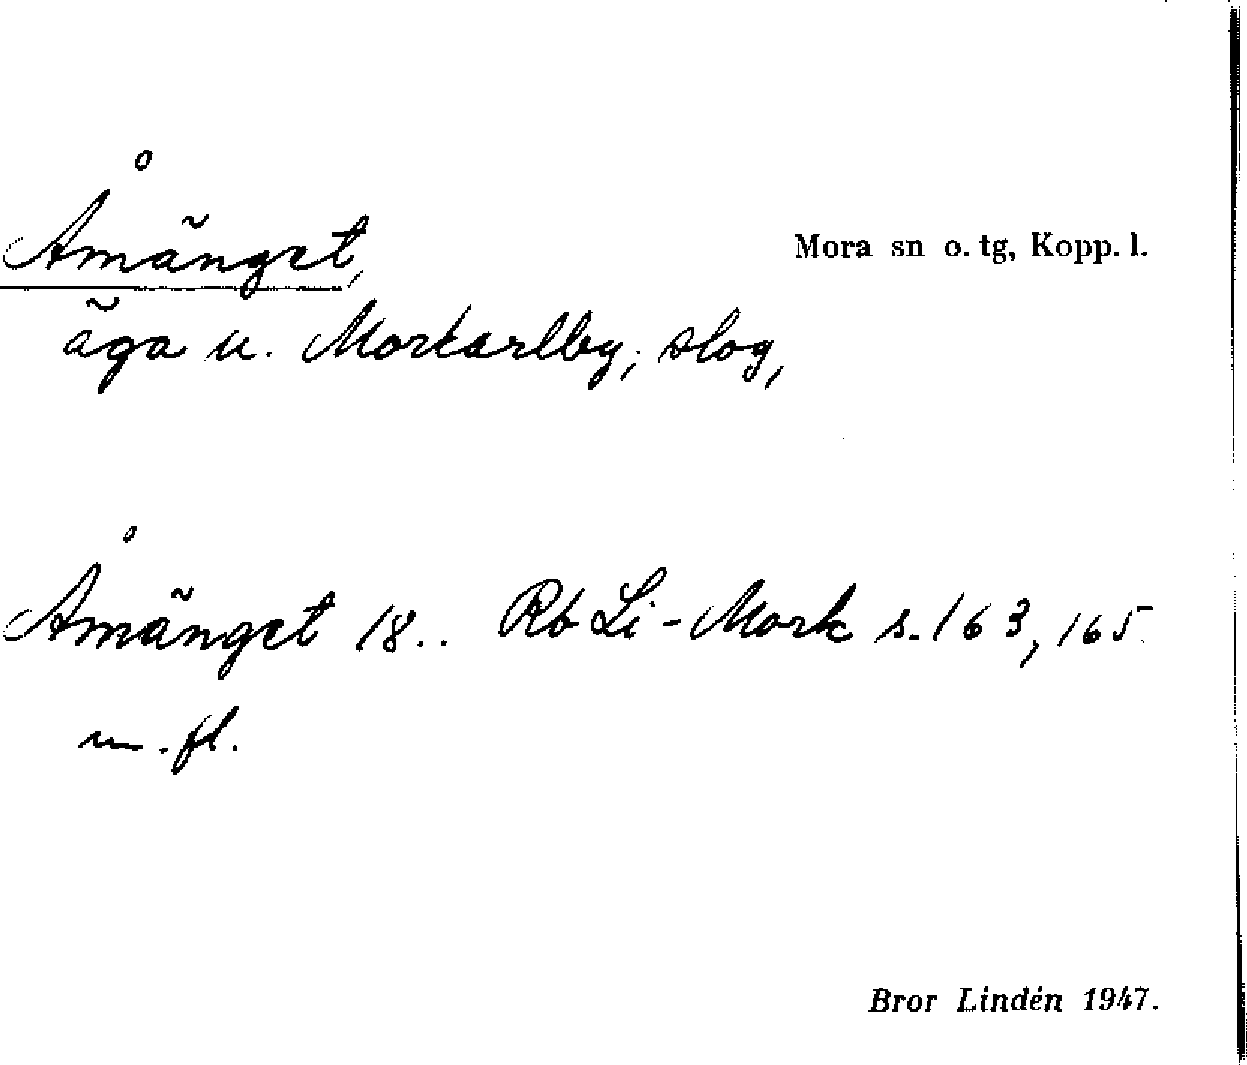 Åmänget, Mora sn o. tg, Kopp. l.
äga u. Morkarlby; slog,
Åmänget 18.. Rb Li-Mork s. 163, 165.
m. fl.
Bror Lindén 1947.